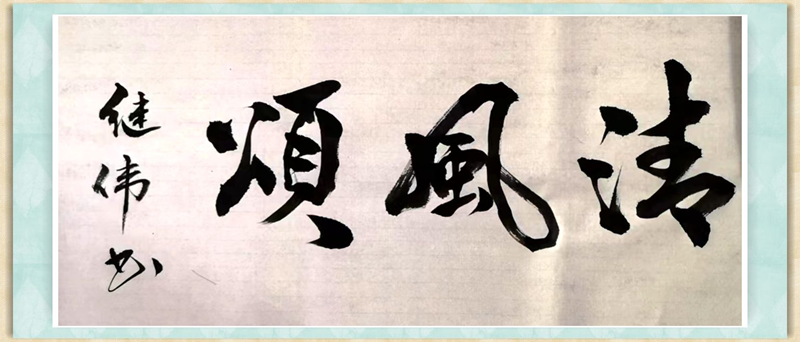 清風頌
继伟书